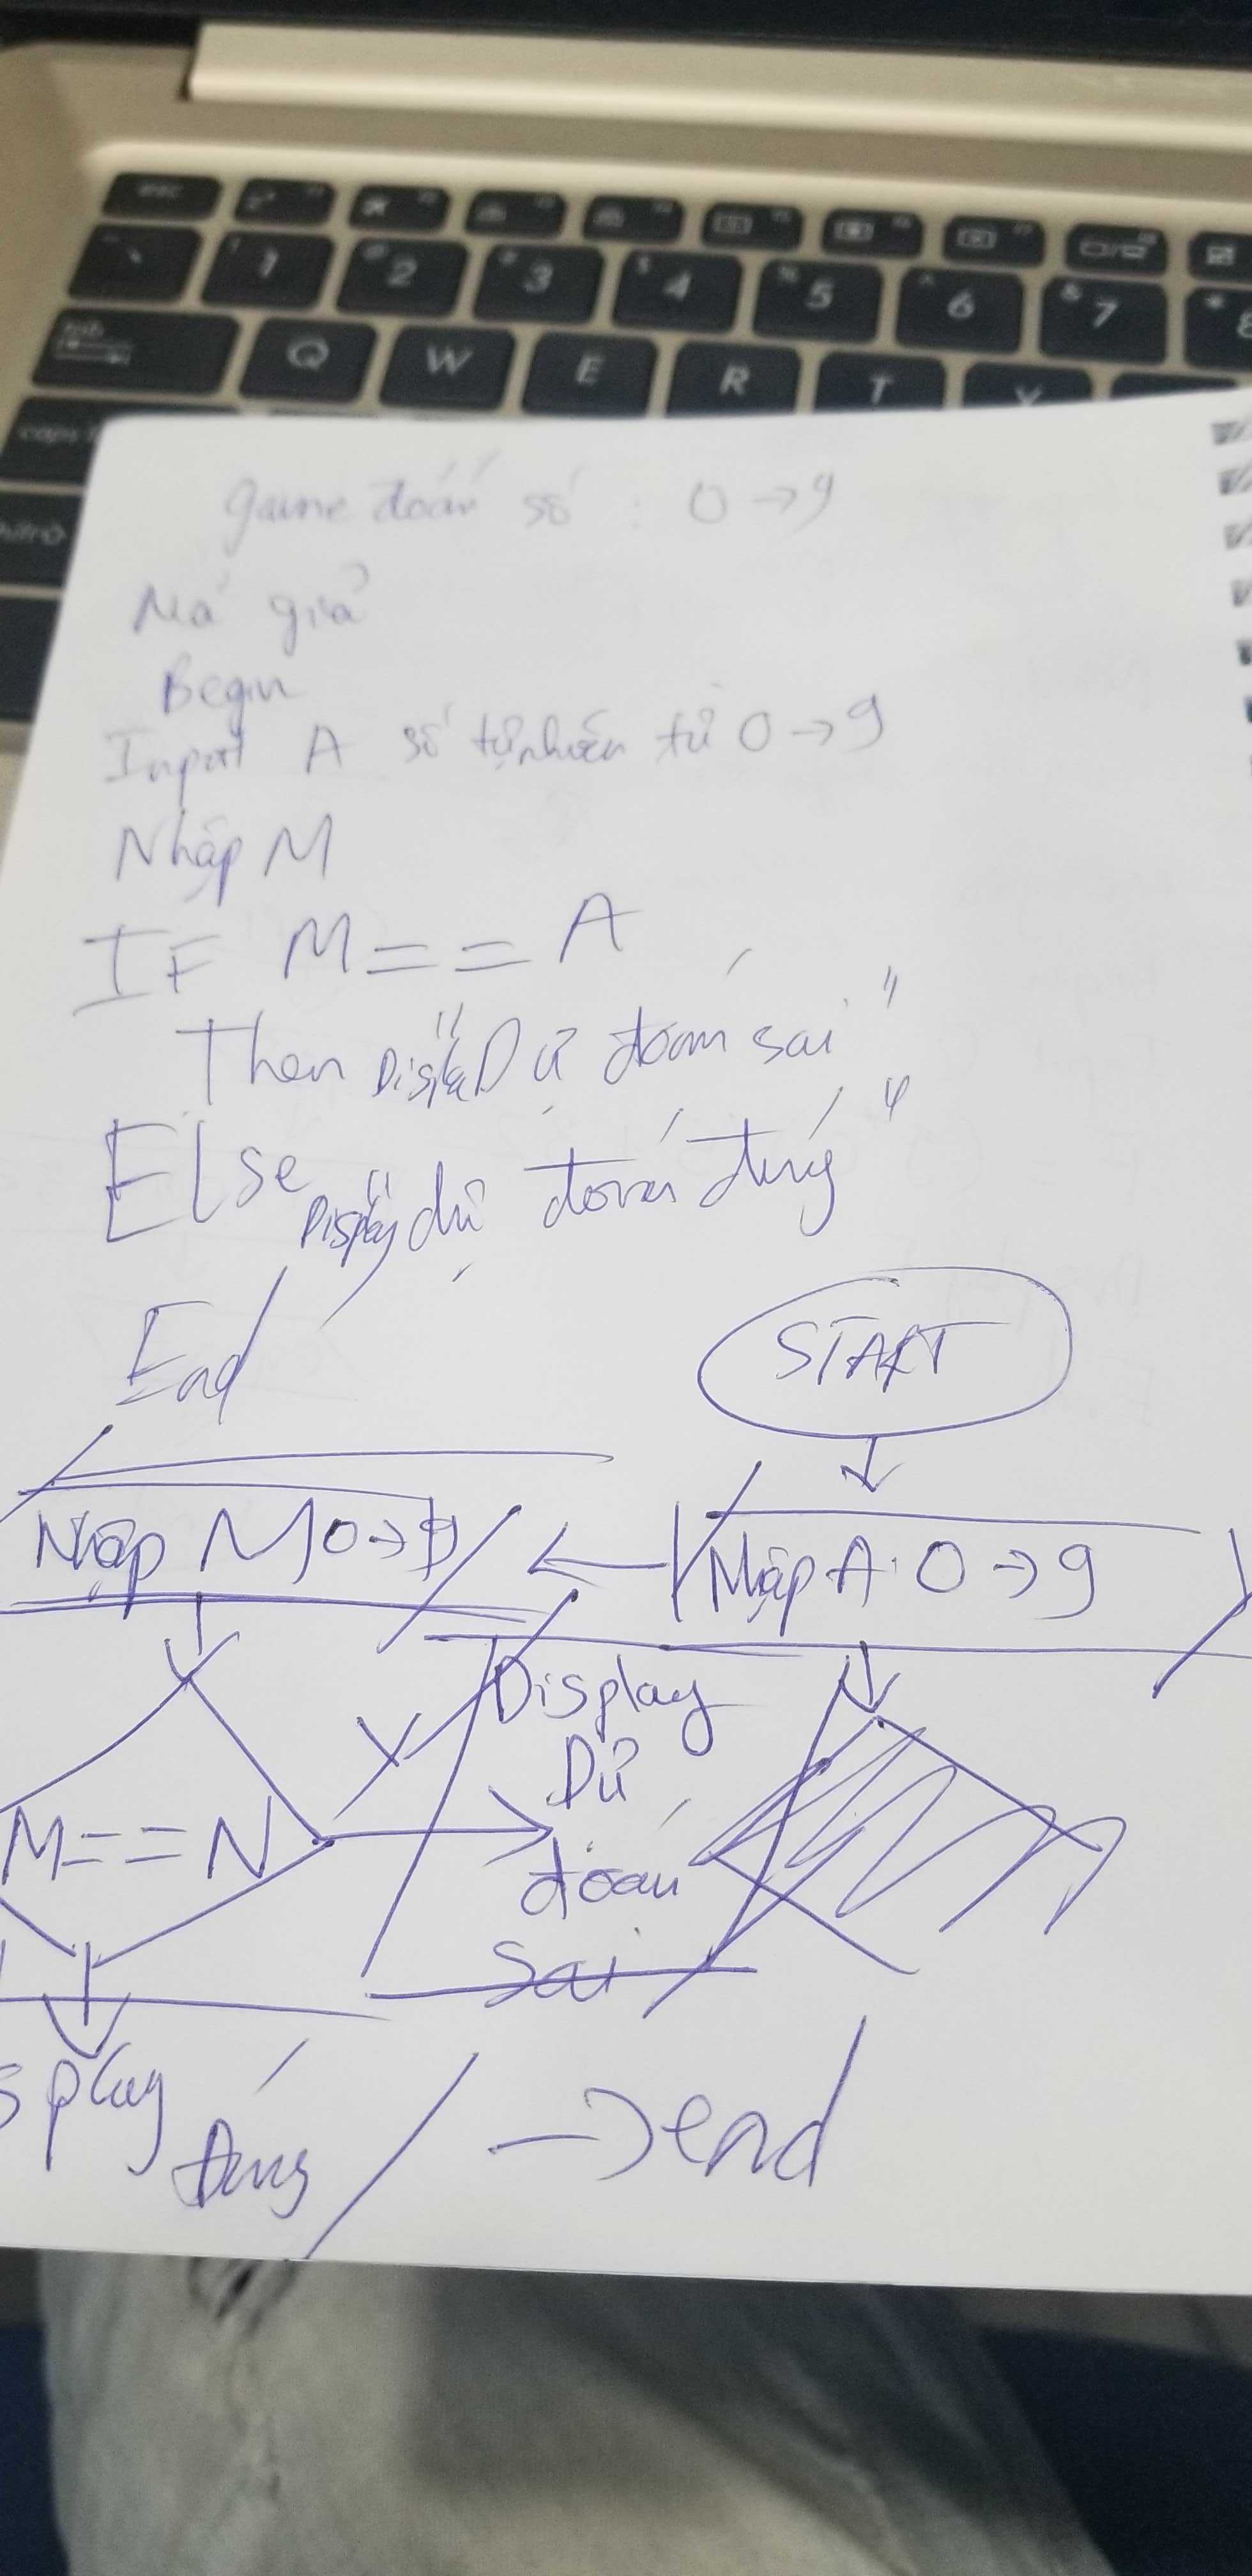 esc
1 2 3 4 5 6 7 8
tab Q W E R T Y
caps
game đoán số : 0 → 9
Mã giả
Begin
Input A số tự nhiên từ 0 → 9
Nhập M
IF M == A
Then Display "Dự đoán sai"
Else Display "dự đoán đúng"
End
START
Nhập M 0 → 9
Nhập A: 0 → 9
Display
Dự
đoán
sai
M == N
splay
đúng
→ end